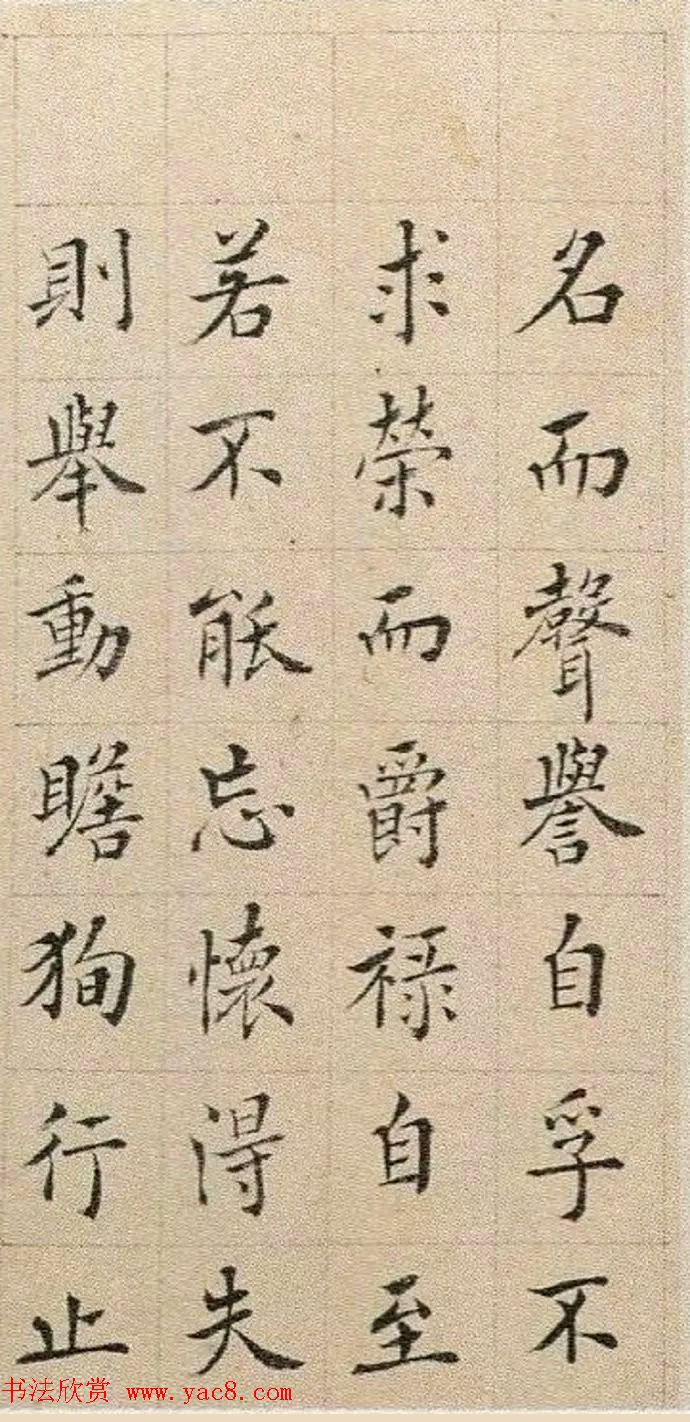 名而聲譽自孚不
求榮而爵禄自至
若不能忘懷得失
則舉動瞻狥行止
书法欣赏 www.yac8.com